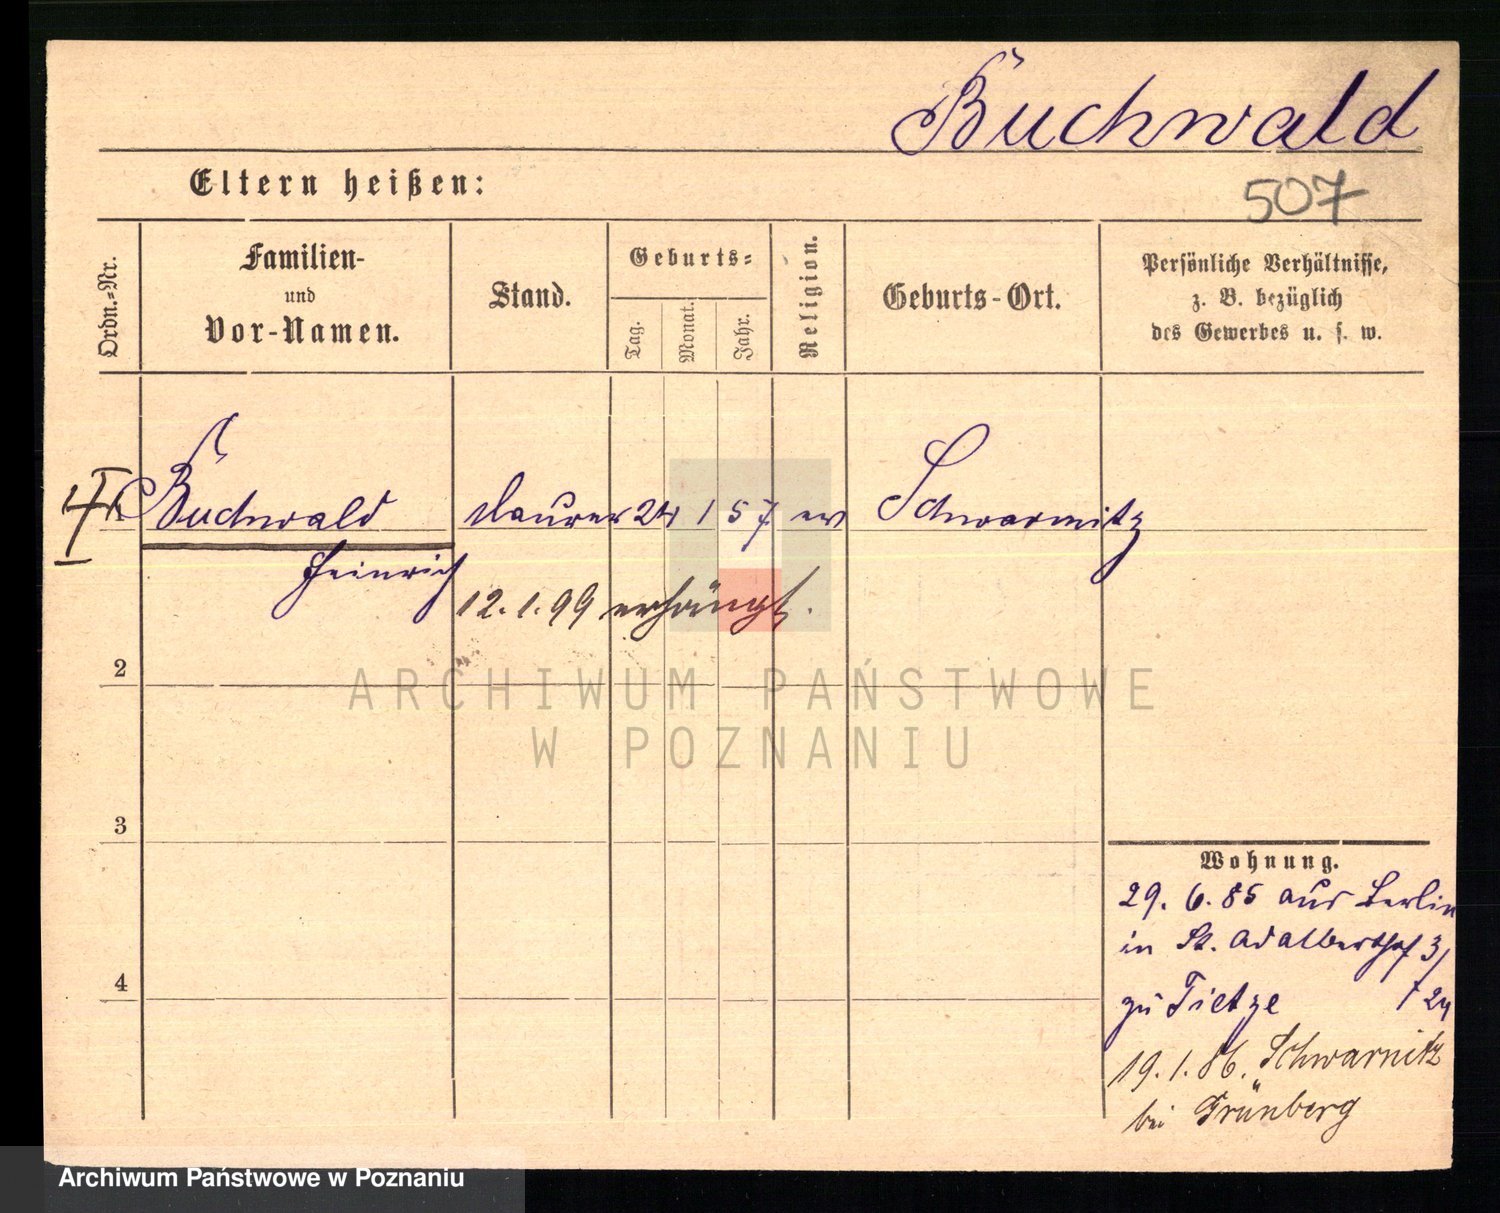 Buchwald
Eltern heißen:
507
Ordn.=Nr.
Familien-
und
Vor-Namen.
Stand.
Geburts=
Tag.
Monat.
Jahr.
Religion.
Geburts-Ort.
Persönliche Verhältnisse,
z. B. bezüglich
des Gewerbes u. s. w.
Buchwald
Maurer 24 1 57 ev
Schwarmitz
Heinrich
12. 1. 99 erhängt.
2
ARCHIWUM PAŃSTWOWE
W POZNANIU
3
4
Wohnung.
29. 6. 85 aus Berlin
in St. Adalberthof 3/
zu Tietze
19. 1. 86. Schwarmitz
bei Grünberg
Archiwum Państwowe w Poznaniu